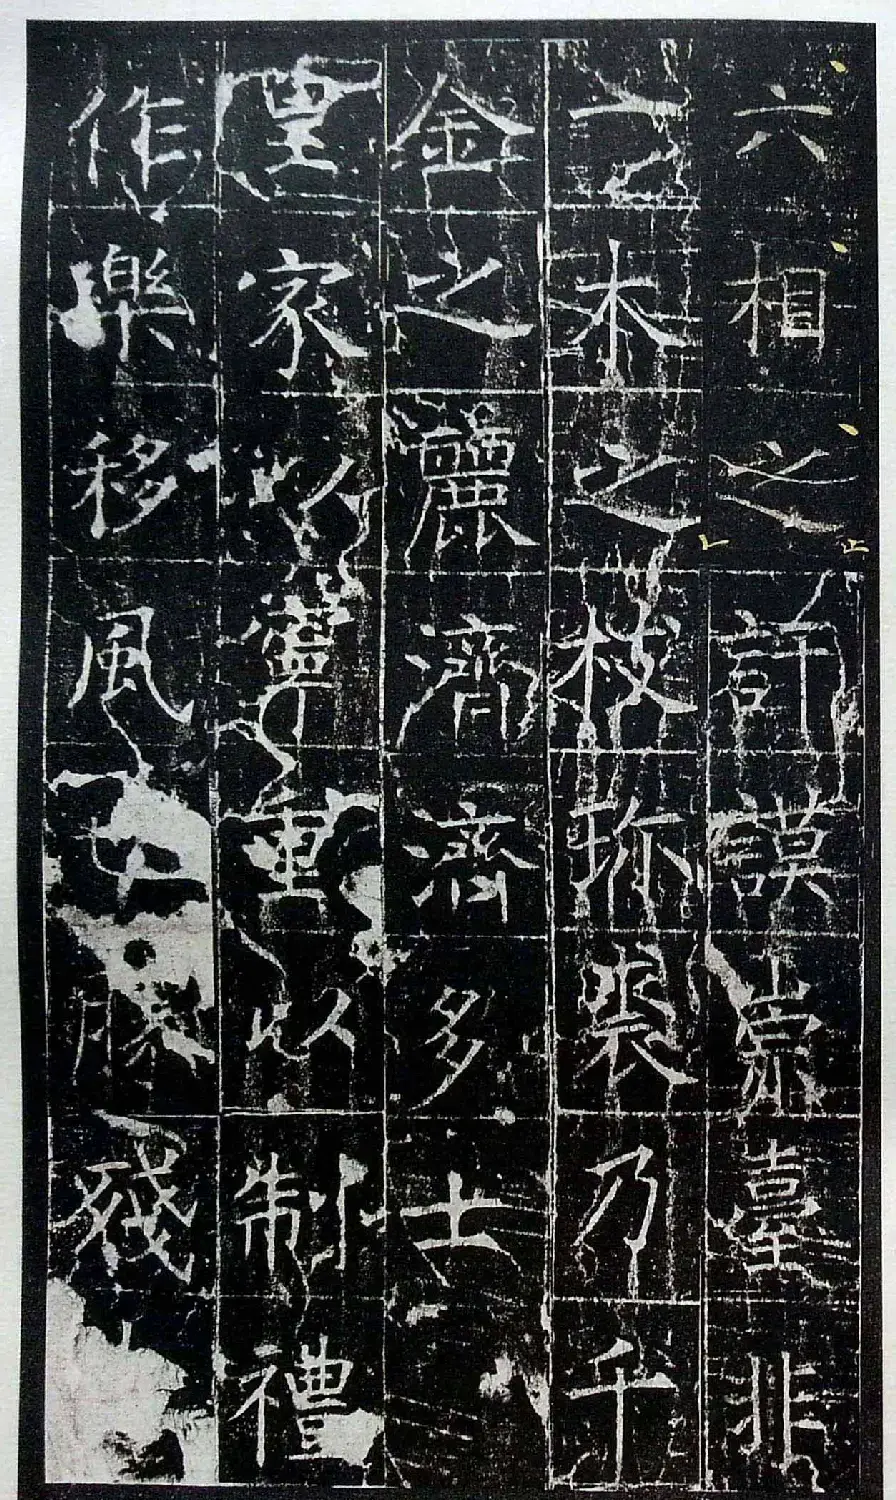 六相之訏謨崇臺非
一木之枝珍裘乃千
金之麗濟濟多士
皇家以寧重以制禮
作樂移風勝殘